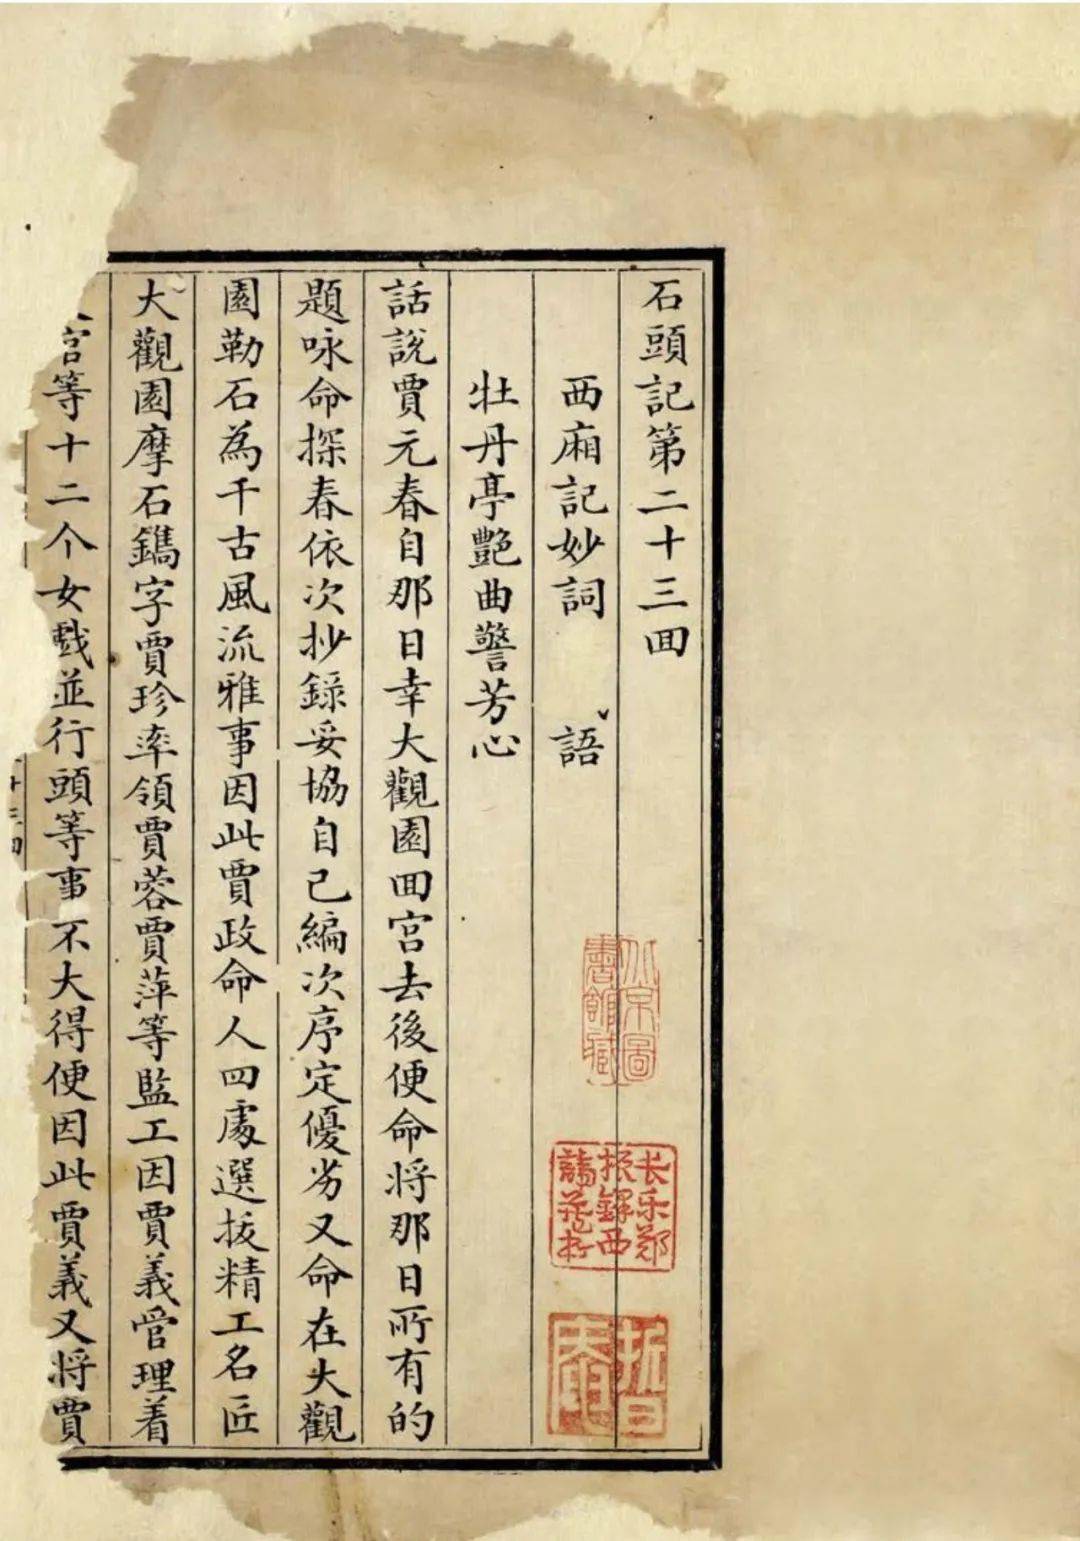 石頭記第二十三回
西廂記妙詞 語
牡丹亭艷曲警芳心
話說賈元春自那日幸大觀園回宮去後便命將那日所有的
題咏命探春依次抄錄妥協自己編次序定優劣又命在大觀
園勒石為千古風流雅事因此賈政命人四處選拔精工名匠
大觀園摩石鐫字賈珍率領賈蓉賈萍等監工因賈義管理着
官等十二个女戲並行頭等事不大得便因此賈義又將賈
北京圖
書館藏
长乐郑
振鐸西
諦藏书